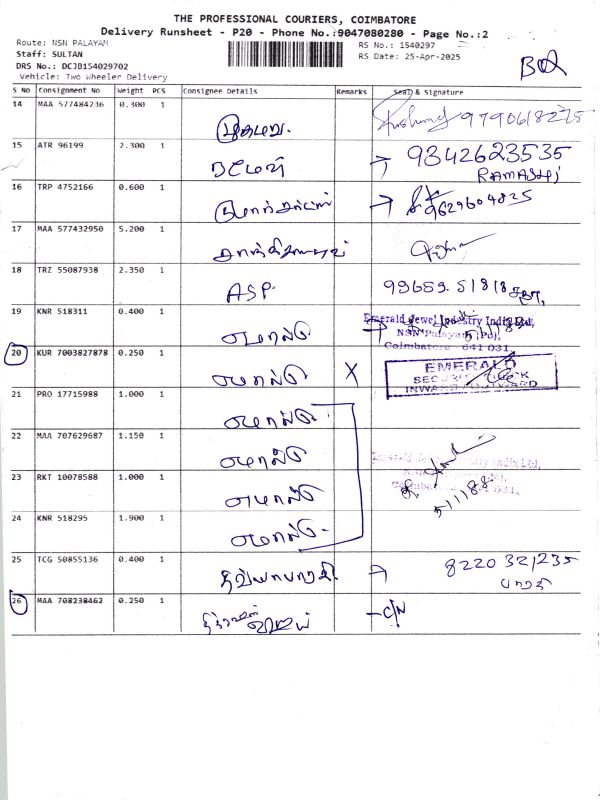 THE PROFESSIONAL COURIERS, COIMBATORE
Delivery Runsheet - P20 - Phone No.:9047080280 - Page No.:2
Route: NSN PALAYAM
RS No.: 1540297
Staff: SULTAN
RS Date: 25-Apr-2025
DRS No.: DCJB154029702
Vehicle: Two Wheeler Delivery
S No Consignment No Weight PCS Consignee Details Remarks Seal & Signature
14 MAA 577484236 0.300 1 9790618275
15 ATR 96199 2.300 1 → 9342623535
16 TRP 4752166 0.600 1 → 9629604825
17 MAA 577432950 5.200 1
18 TRZ 55087938 2.350 1 ASP.
19 KNR 518311 0.400 1 எமரால்டு → Emerald Jewel Industry India Ltd,
NSN Palayam (Po),
Coimbatore - 641 031.
20 KUR 7003827878 0.250 1 எமரால்டு X EMERALD
21 PRO 17715988 1.000 1 எமரால்டு
22 MAA 707629687 1.150 1 எமரால்டு
23 RKT 10078588 1.000 1 எமரால்டு
24 KNR 518295 1.900 1 எமரால்டு
25 TCG 50855136 0.400 1 திவ்யபாரதி → 8220321235
பாரதி
26 MAA 708238462 0.250 1